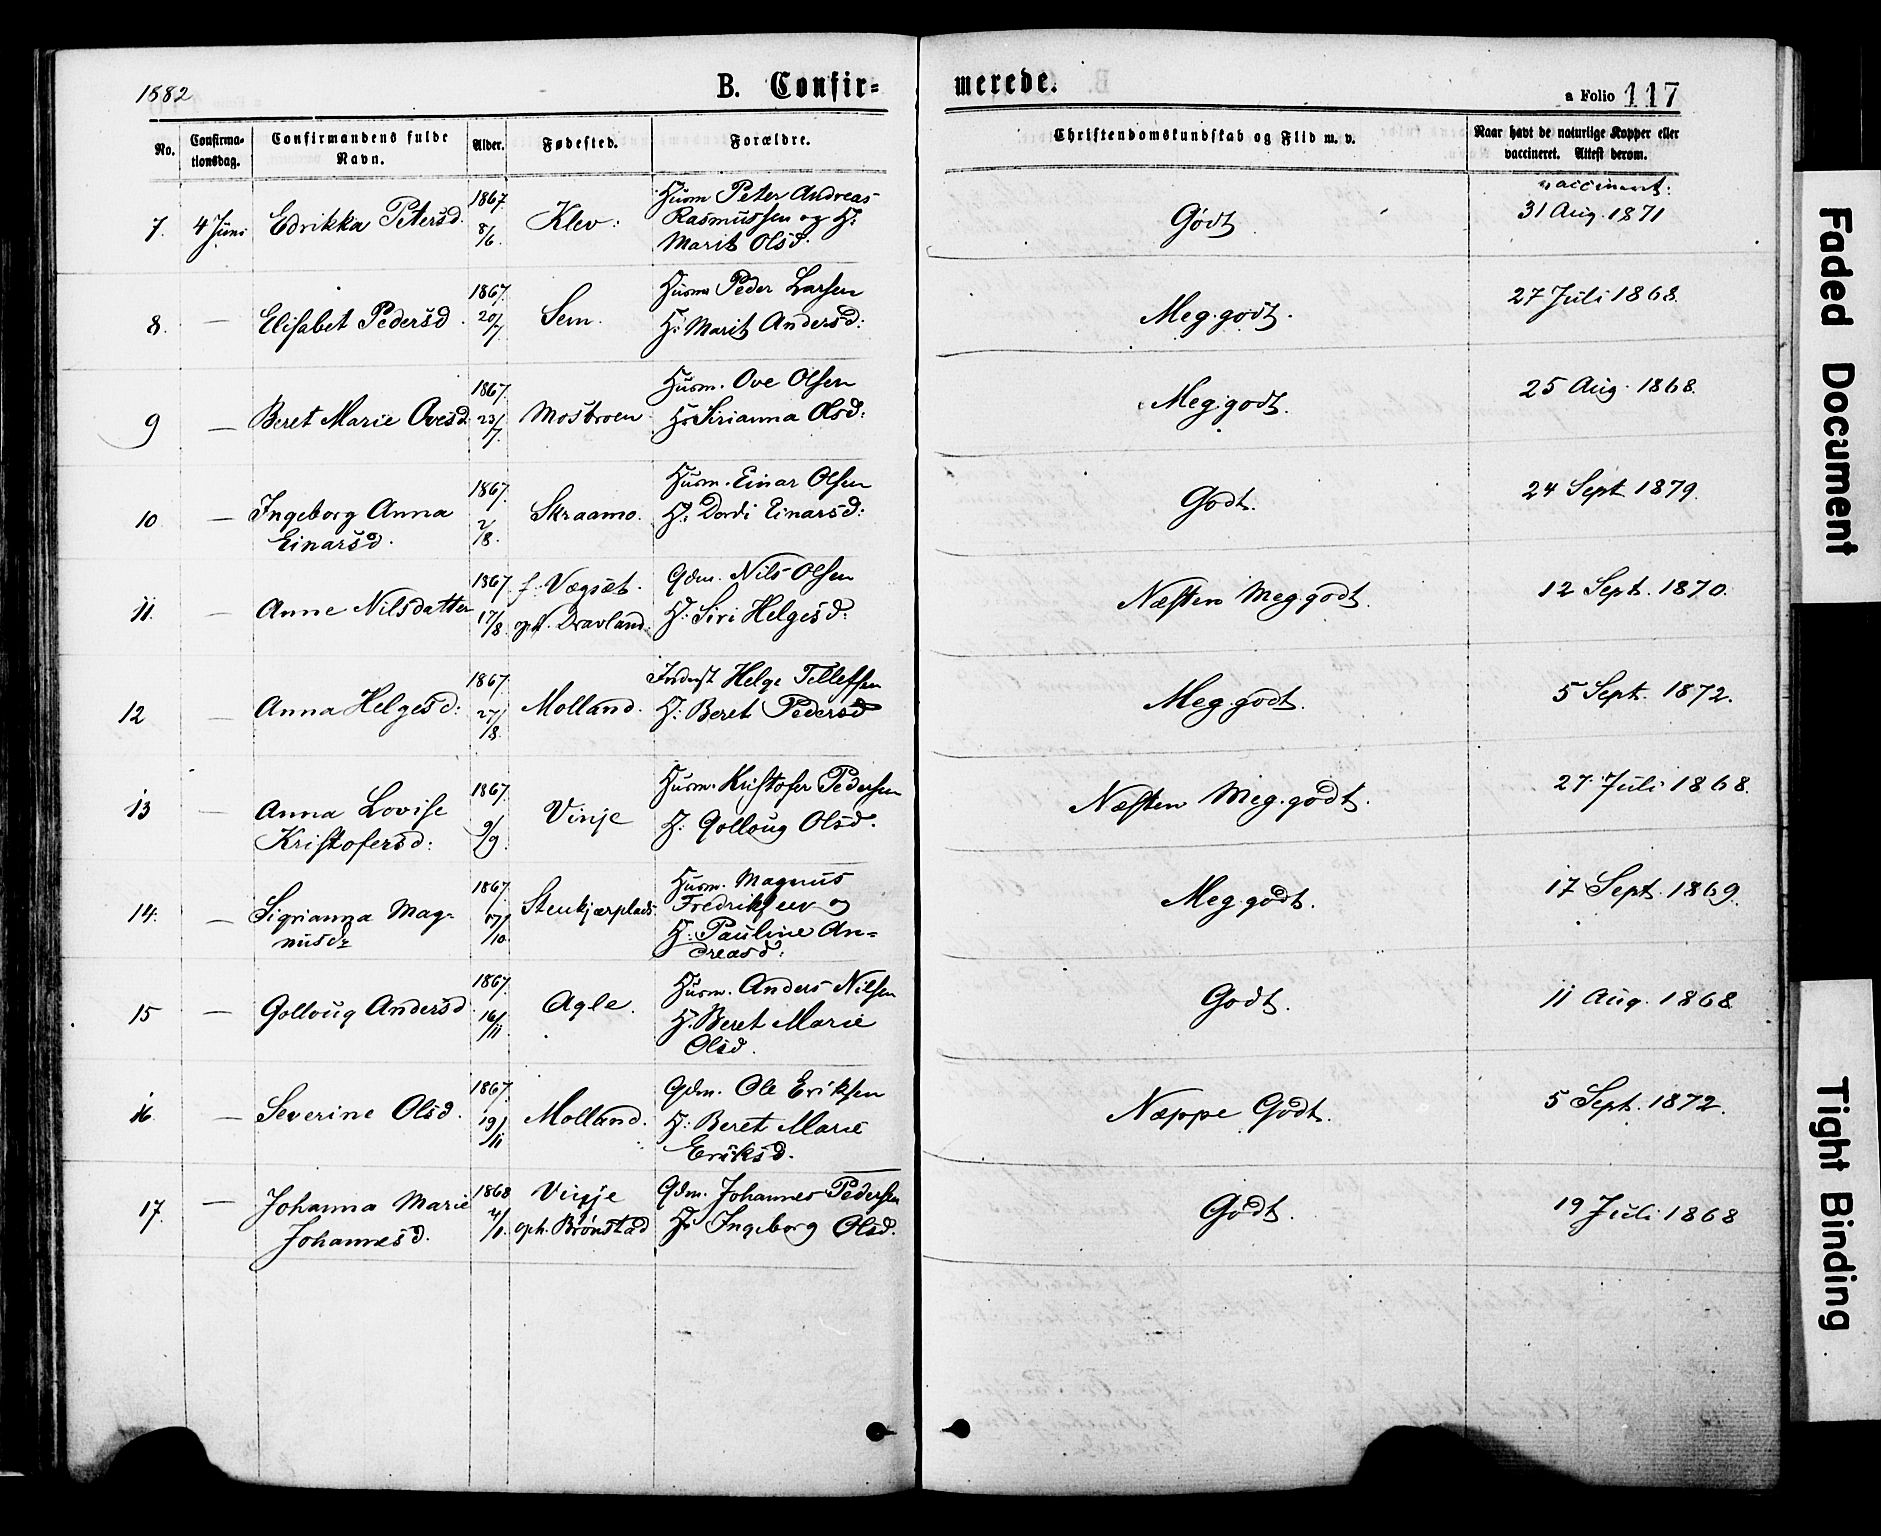 1882
B. Confir=
merede.
a Folio 117
No.
Confirma-
tionsdag.
Confirmandens fulde
Navn.
Alder.
Fødested.
Forældre.
Christendomskundskab og Flid m. v.
Naar havt de naturlige Kopper eller
vaccineret. Attest derom.
7. 4 Juni Edrikka Petersd. 1867. 8/6 Klev:
Husm Peter Andreas
Rasmussen og H.
Marit Olsd.
Godt.
vaccineret:
31 Aug. 1871
8. — Elisabet Pedersd. 1867. 20/7 Sem.
Husm Peder Larsen
H: Marit Andersd:
Meg. godt.
27 Juli 1868.
9 — Beret Marie Ovesd 1867. 23/7 Mosbroen
Husm. Ove Olsen
H: Sirianna Olsd:
Meg. godt.
25 Aug. 1868.
10 — Ingeborg Anna
Einarsd. 1867. 2/8. Skraamo.
Husm. Einar Olsen
H: Dordi Einarsd:
Godt.
24 Sept 1879.
11. — Anne Nilsdatter 1867. 17/8. f. Vægset.
opf. Dravland:
Gdm. Nils Olsen
H: Siri Helgesd:
Næsten Meg. godt.
12 Sept. 1870.
12 — Anna Helgesd: 1867. 27/8. Molland.
Inderst Helge Tellefsen
H: Beret Pedersd
Meg. godt.
5 Sept. 1872.
13 — Anna Lovise
Kristofersd: 1867. 9/9. Vinje
Husm. Kristofer Pedersen
H: Golloug Olsd.
Næsten Meg. godt.
27 Juli 1868.
14. — Sigrianna Mag=
nusd: 1867. 17/10. Stenkjærplads
Husm. Magnus
Fredriksen og
H: Pauline An=
dreasd:
Meg. godt.
17 Sept. 1869.
15 — Golloug Andersd 1867. 16/11 Agle.
Husm. Anders Nilsen
H. Beret Marie
Olsd.
Godt.
11 Aug. 1868
16. — Severine Olsd. 1867. 19/11 Molland.
Gdm. Ole Eriksen
H: Beret Marie
Eriksd.
Næppe Godt.
5 Sept. 1872.
17. — Johanna Marie
Johannesd. 1868 4/1. Vinje
oph. Brønstad
Gdm. Johannes Pedersen
H: Ingeborg Olsd.
Godt.
19 Juli 1868
Faded Document
Tight Binding